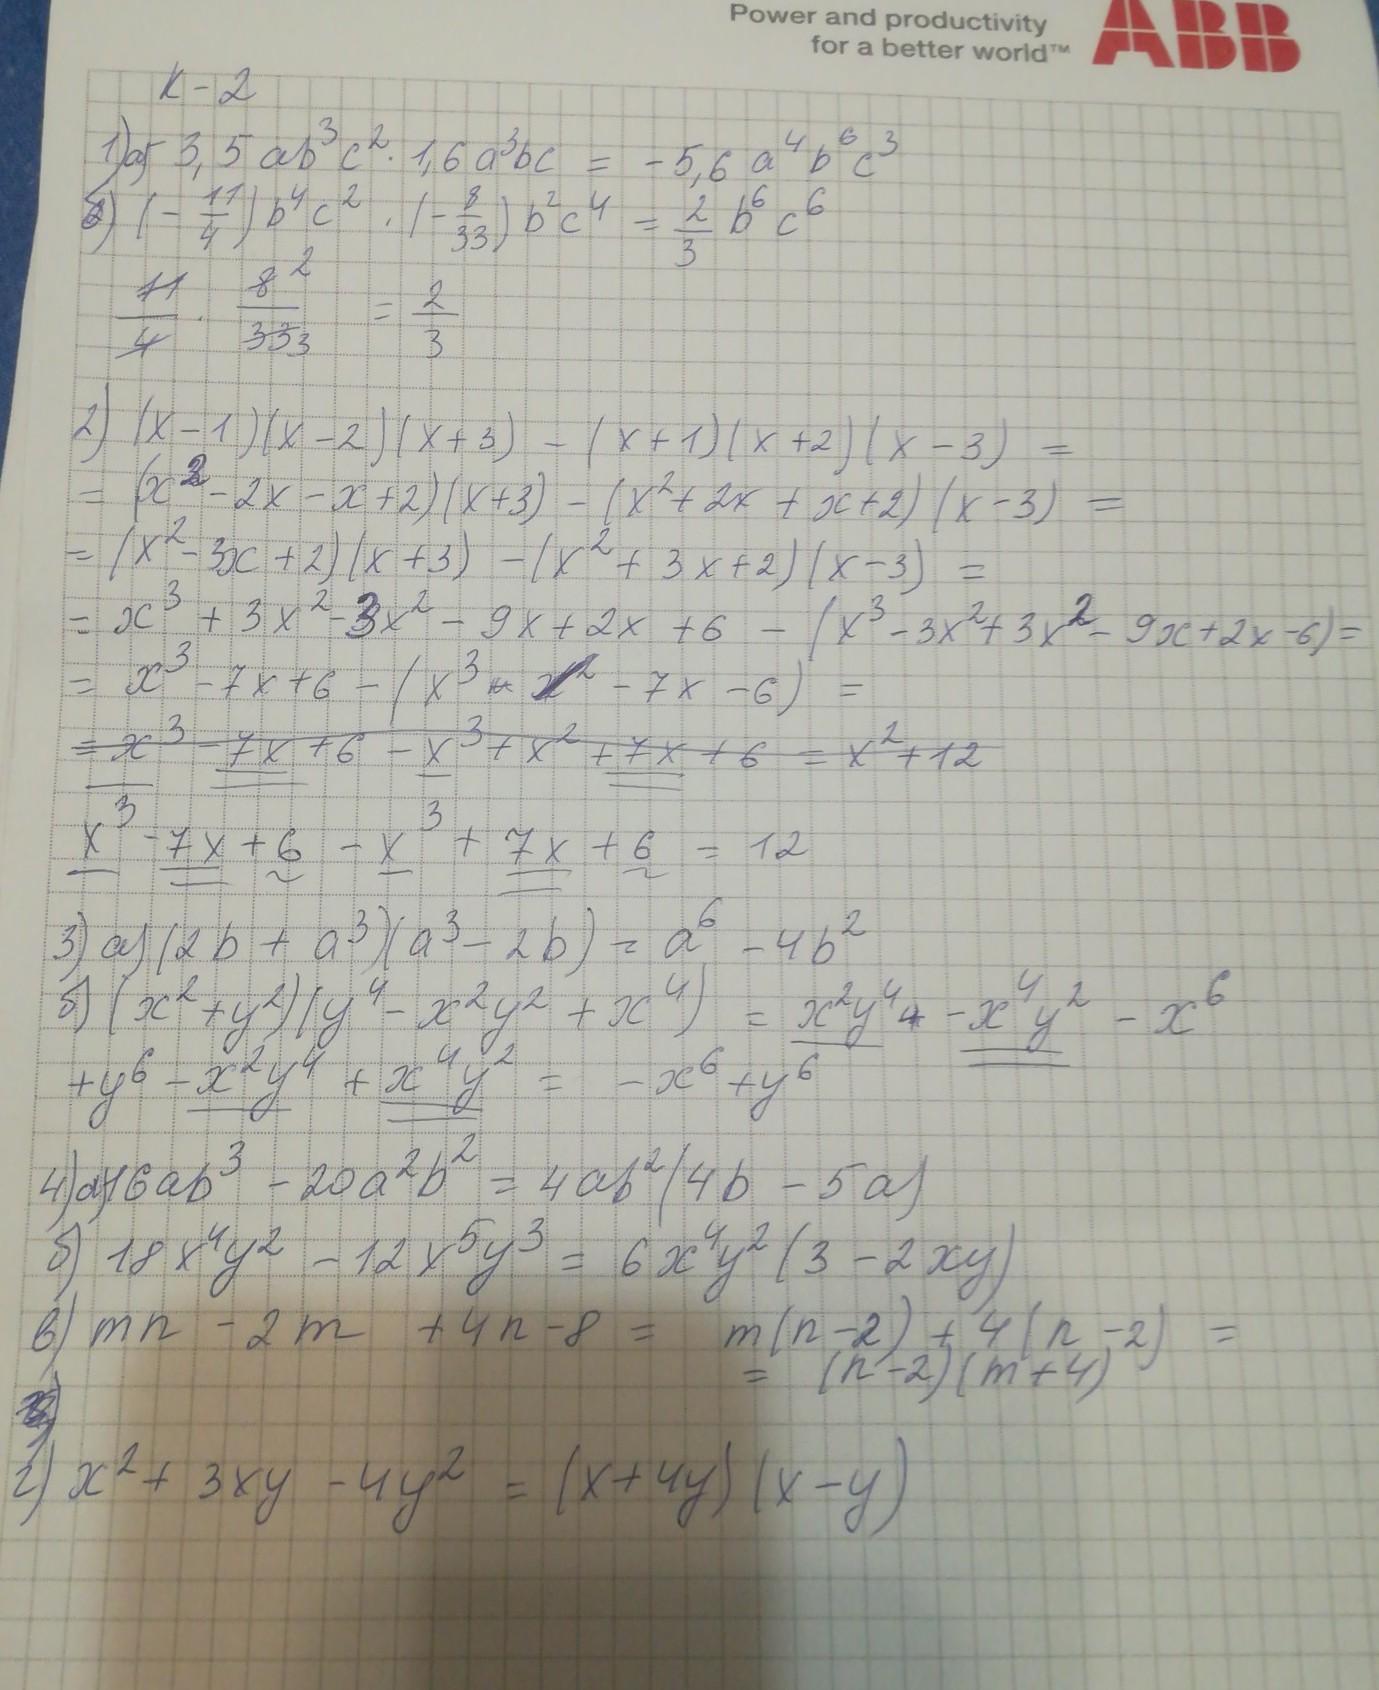 Power and productivity
for a better world™
ABB
К-2
1) а) -3,5 ab³c² · 1,6a³bc = -5,6 a⁴b⁶c³
б) (-11/4) b⁴c² · (-8/33) b²c⁴ = 2/3 b⁶c⁶
11/4 · 8²/33 3 = 2/3
2) (x-1)(x-2)(x+3) - (x+1)(x+2)(x-3) =
= (x²-2x-x+2)(x+3) - (x²+2x+x+2)(x-3) =
= (x²-3x+2)(x+3) - (x²+3x+2)(x-3) =
= x³+3x²-3x²-9x+2x+6 - (x³-3x²+3x²-9x+2x-6) =
= x³-7x+6-(x³-7x-6) =
= x³-7x+6-x³+x²+7x+6 = x²+12
x³-7x+6-x³+7x+6 = 12
3) а) (2b+a³)(a³-2b) = a⁶-4b²
б) (x²+y²)(y⁴-x²y²+x⁴) = x²y⁴ -x⁴y² - x⁶
+y⁶-x²y⁴+x⁴y² = -x⁶+y⁶
4) а) 16ab³-20a²b² = 4ab²(4b-5a)
б) 18x⁴y²-12x⁵y³ = 6x⁴y²(3-2xy)
в) mn-2m+4n-8 = m(n-2)+4(n-2) =
= (n-2)(m+4)
г) x²+3xy-4y² = (x+4y)(x-y)